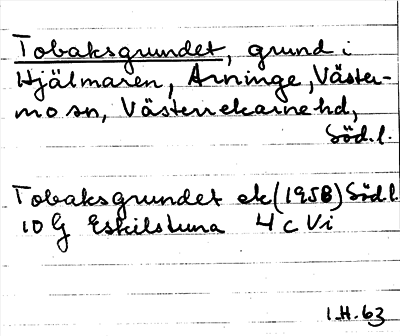 Tobaksgrundet, grund i
Hjälmaren, Arninge, Väster-
mo sn, Västerrekarne hd,
Söd.l.
Tobaksgrundet ek (1958) Söd l
10 G Eskilstuna 4 c Vi
1.H.63